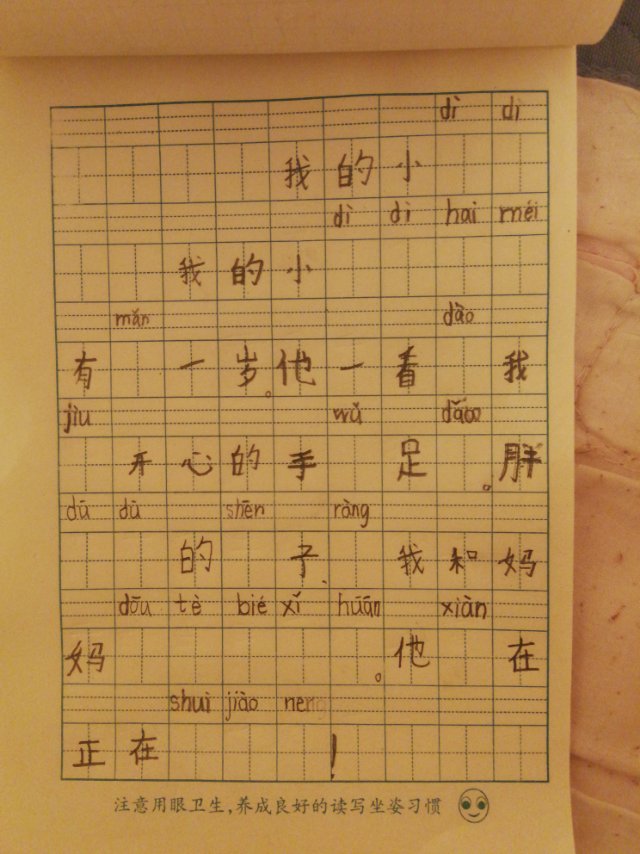 dì dì
我的小
dì dì hai méi
我的小
mǎn dào
有 一岁。他一看 我
jìu wǔ dǎoo
开心的手 足 。胖
dū dū shēn ràng
的 子、我和妈
dōu tè bié xǐ huān xiàn
妈 。他 在
shuì jiào neng
正在 !
注意用眼卫生,养成良好的读写坐姿习惯